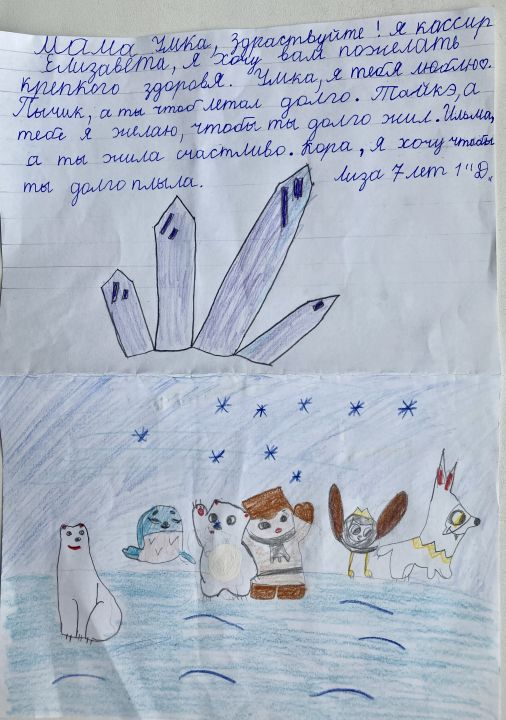 Мама Умка, здраствуйте! Я кассир
Елизавета, я хочу вам пожелать
крепкого здоровя. Умка, я тебя люблю.
Пычик, а ты чтоб летал долго. Тайкэ, а
тебе я желаю, чтобы ты долго жил. Ильма,
а ты жила счастливо. Кора, я хочу чтобы
ты долго плыла. Лиза 7 лет 1"Д"